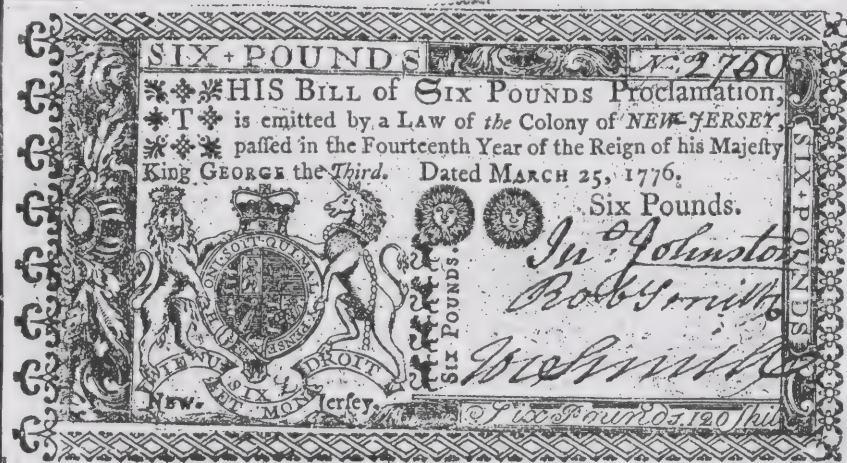 SIX + POUNDS
No. 2750
THIS BILL of SIX POUNDS Proclamation,
is emitted by a LAW of the Colony of NEW-JERSEY,
paſſed in the Fourteenth Year of the Reign of his Majeſty
King GEORGE the Third. Dated MARCH 25, 1776.
Six Pounds.
HONI·SOIT·QUI·MAL·Y·PENSE
SIX POUNDS.
Jno Johnston
Rob Smith
SIX + POUNDS
DIEU
DROIT
SIX £
ET MON
NEW-Jerſey.
Six Pounds. 120 ſhil